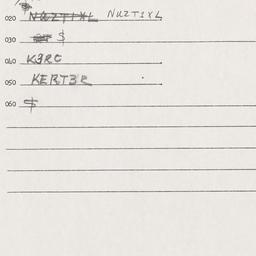 020 NUZTIXL NUZTIXL
030 $
040 K3RC
050 KERT3R
060 $